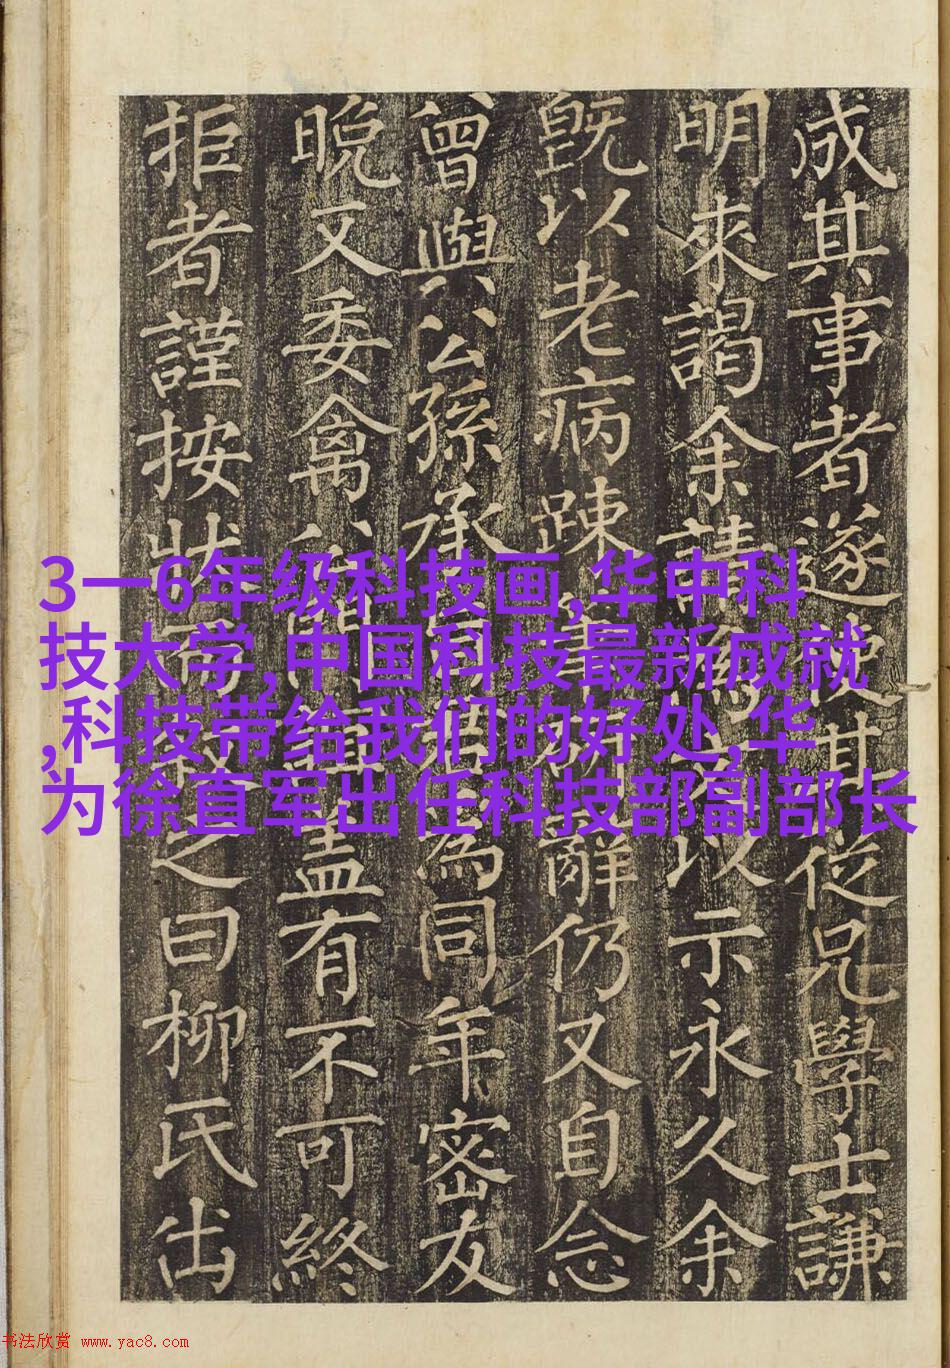 成其事者遂使其從兄學士謙
明來謁余請以示永久余
既以老病踈辭仍又自念
曾與公孫承為同年密友
晚又委禽公盖有不可終
拒者謹按狀而叙之曰柳氏出
3一6年级科技画,华中科
技大学,中国科技最新成就
,科技带给我们的好处,华
为徐直军出任科技部副部长
书法欣赏 www.yac8.com